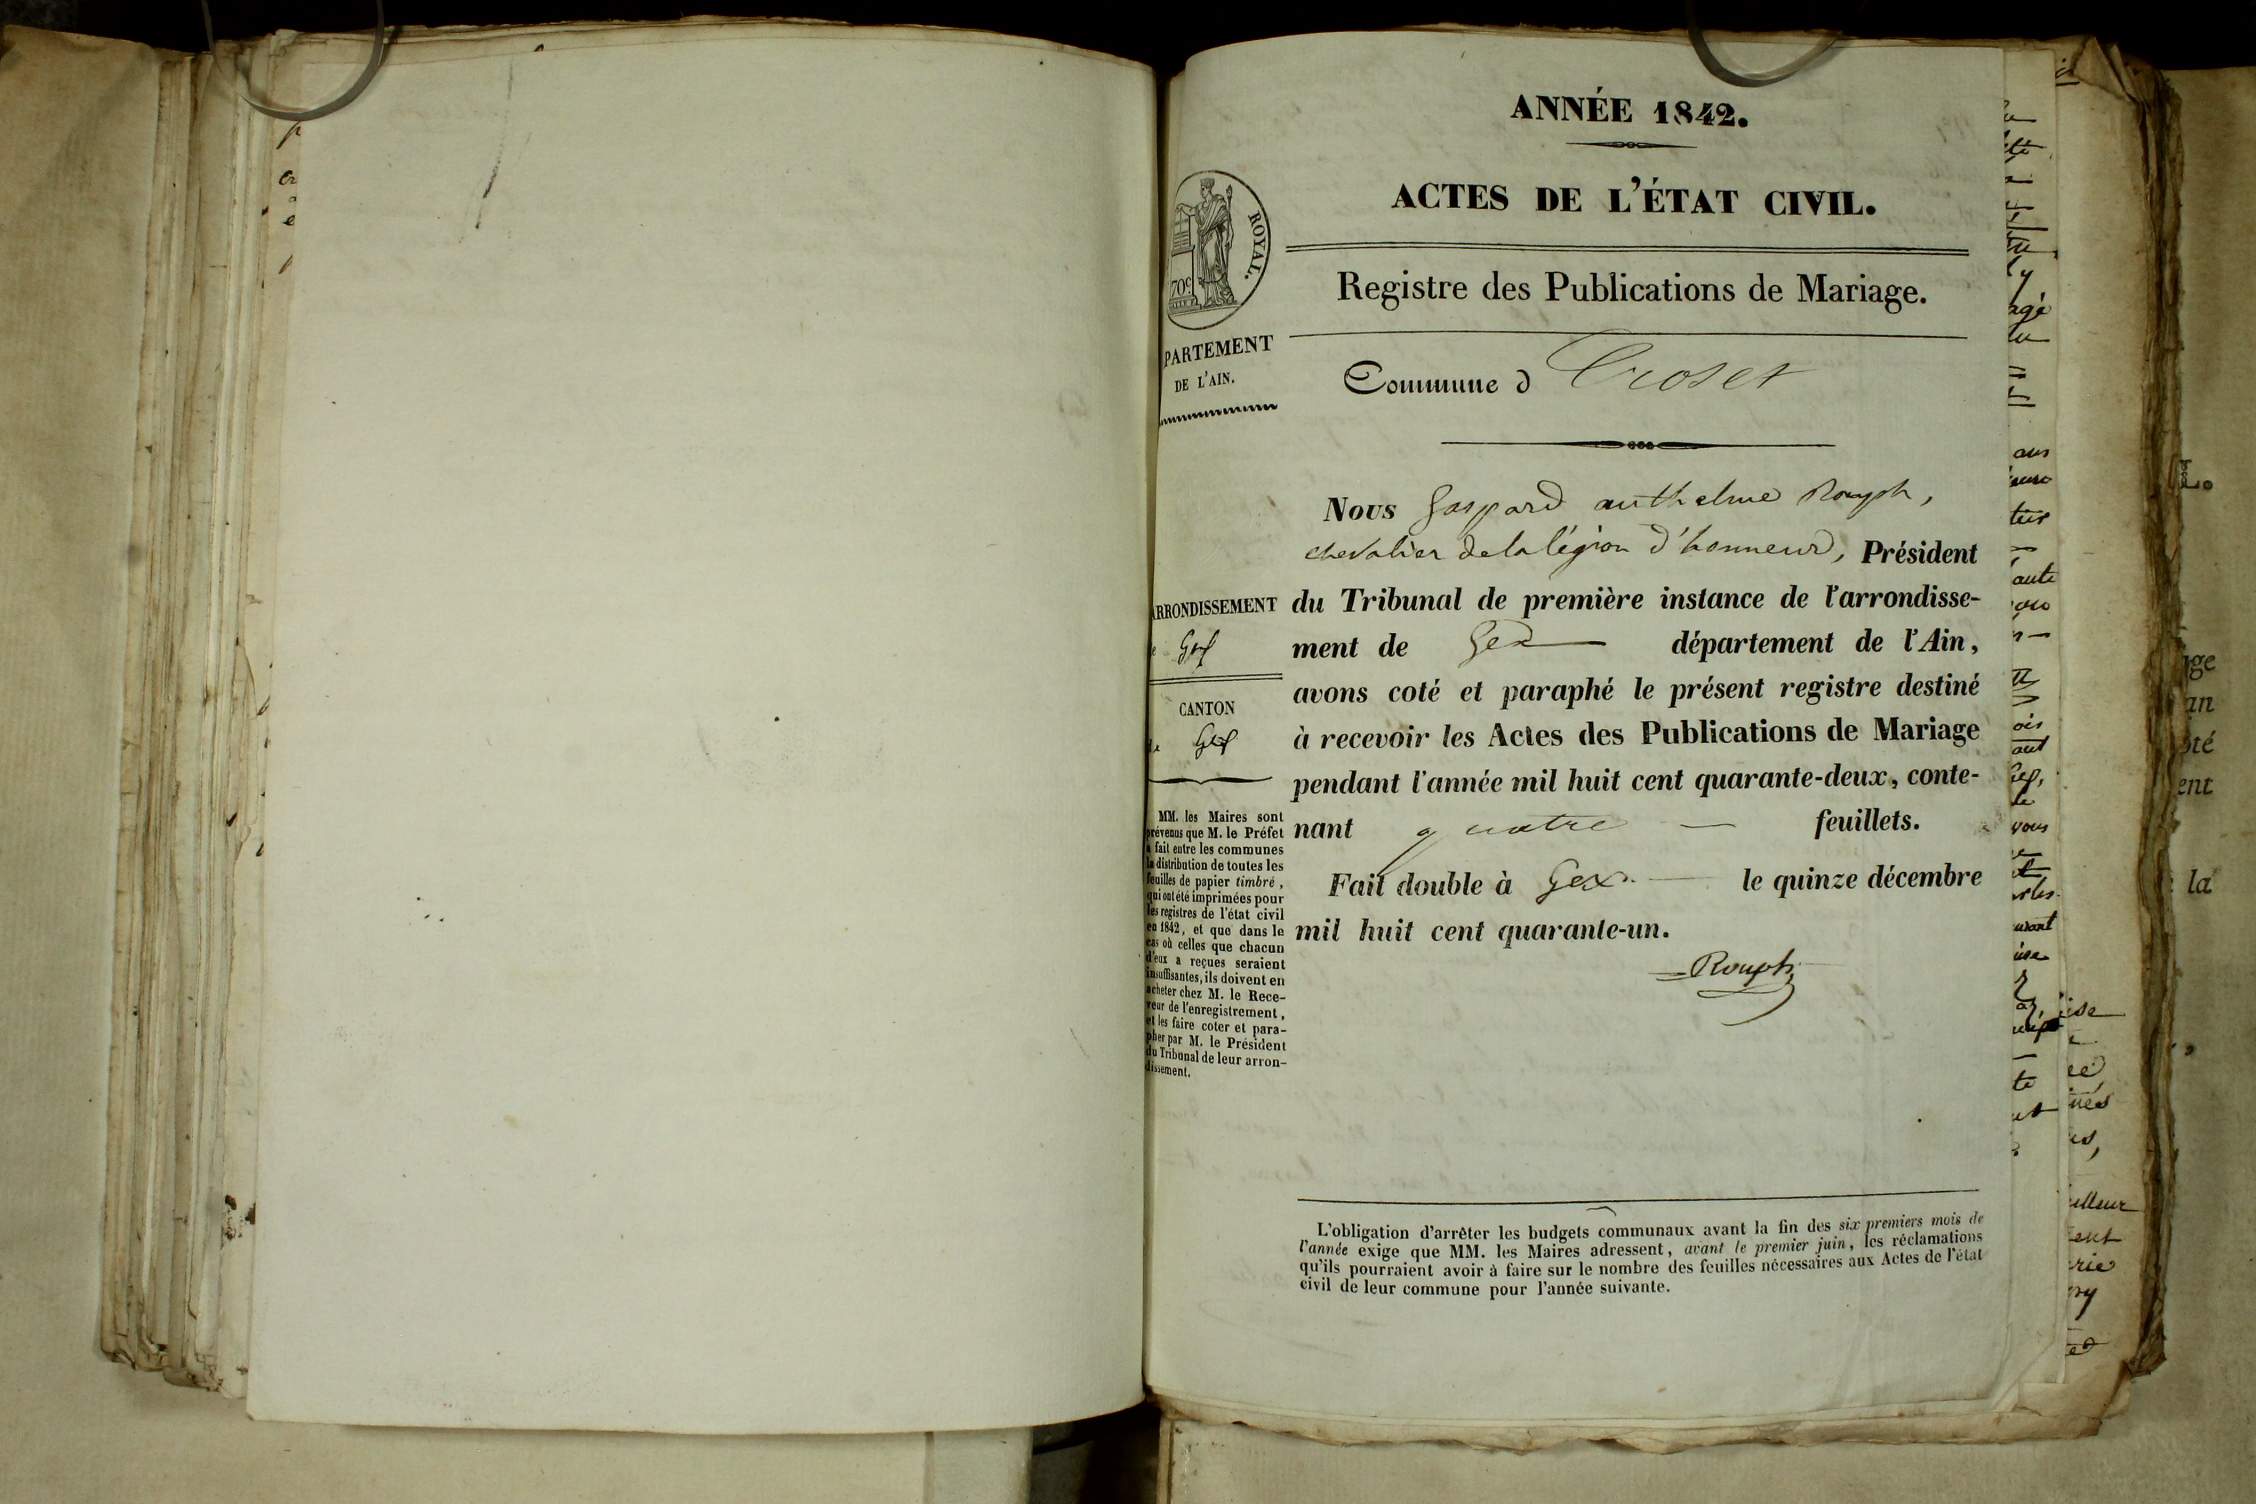 ANNÉE 1842.
ACTES DE L'ÉTAT CIVIL.
ROYAL.
70c
Registre des Publications de Mariage.
PARTEMENT
DE L'AIN.
Commune d Croset
Nous Gaspard anthelme Rouph,
chevalier de la légion d'honneur, Président
du Tribunal de première instance de l'arrondisse-
ment de Gex département de l'Ain,
avons coté et paraphé le présent registre destiné
à recevoir les Actes des Publications de Mariage
pendant l'année mil huit cent quarante-deux, conte-
nant quatre feuillets.
Fait double à Gex le quinze décembre
mil huit cent quarante-un.
Rouph
ARRONDISSEMENT
de Gex
CANTON
de Gex
MM. les Maires sont
prévenus que M. le Préfet
a fait entre les communes
la distribution de toutes les
feuilles de papier timbré,
qui ont été imprimées pour
les registres de l'état civil
en 1842, et que dans le
cas où celles que chacun
d'eux a reçues seraient
insuffisantes, ils doivent en
acheter chez M. le Rece-
veur de l'enregistrement,
et les faire coter et para-
pher par M. le Président
du Tribunal de leur arron-
dissement.
L'obligation d'arrêter les budgets communaux avant la fin des six premiers mois de
l'année exige que MM. les Maires adressent, avant le premier juin, les réclamations
qu'ils pourraient avoir à faire sur le nombre des feuilles nécessaires aux Actes de l'état
civil de leur commune pour l'année suivante.